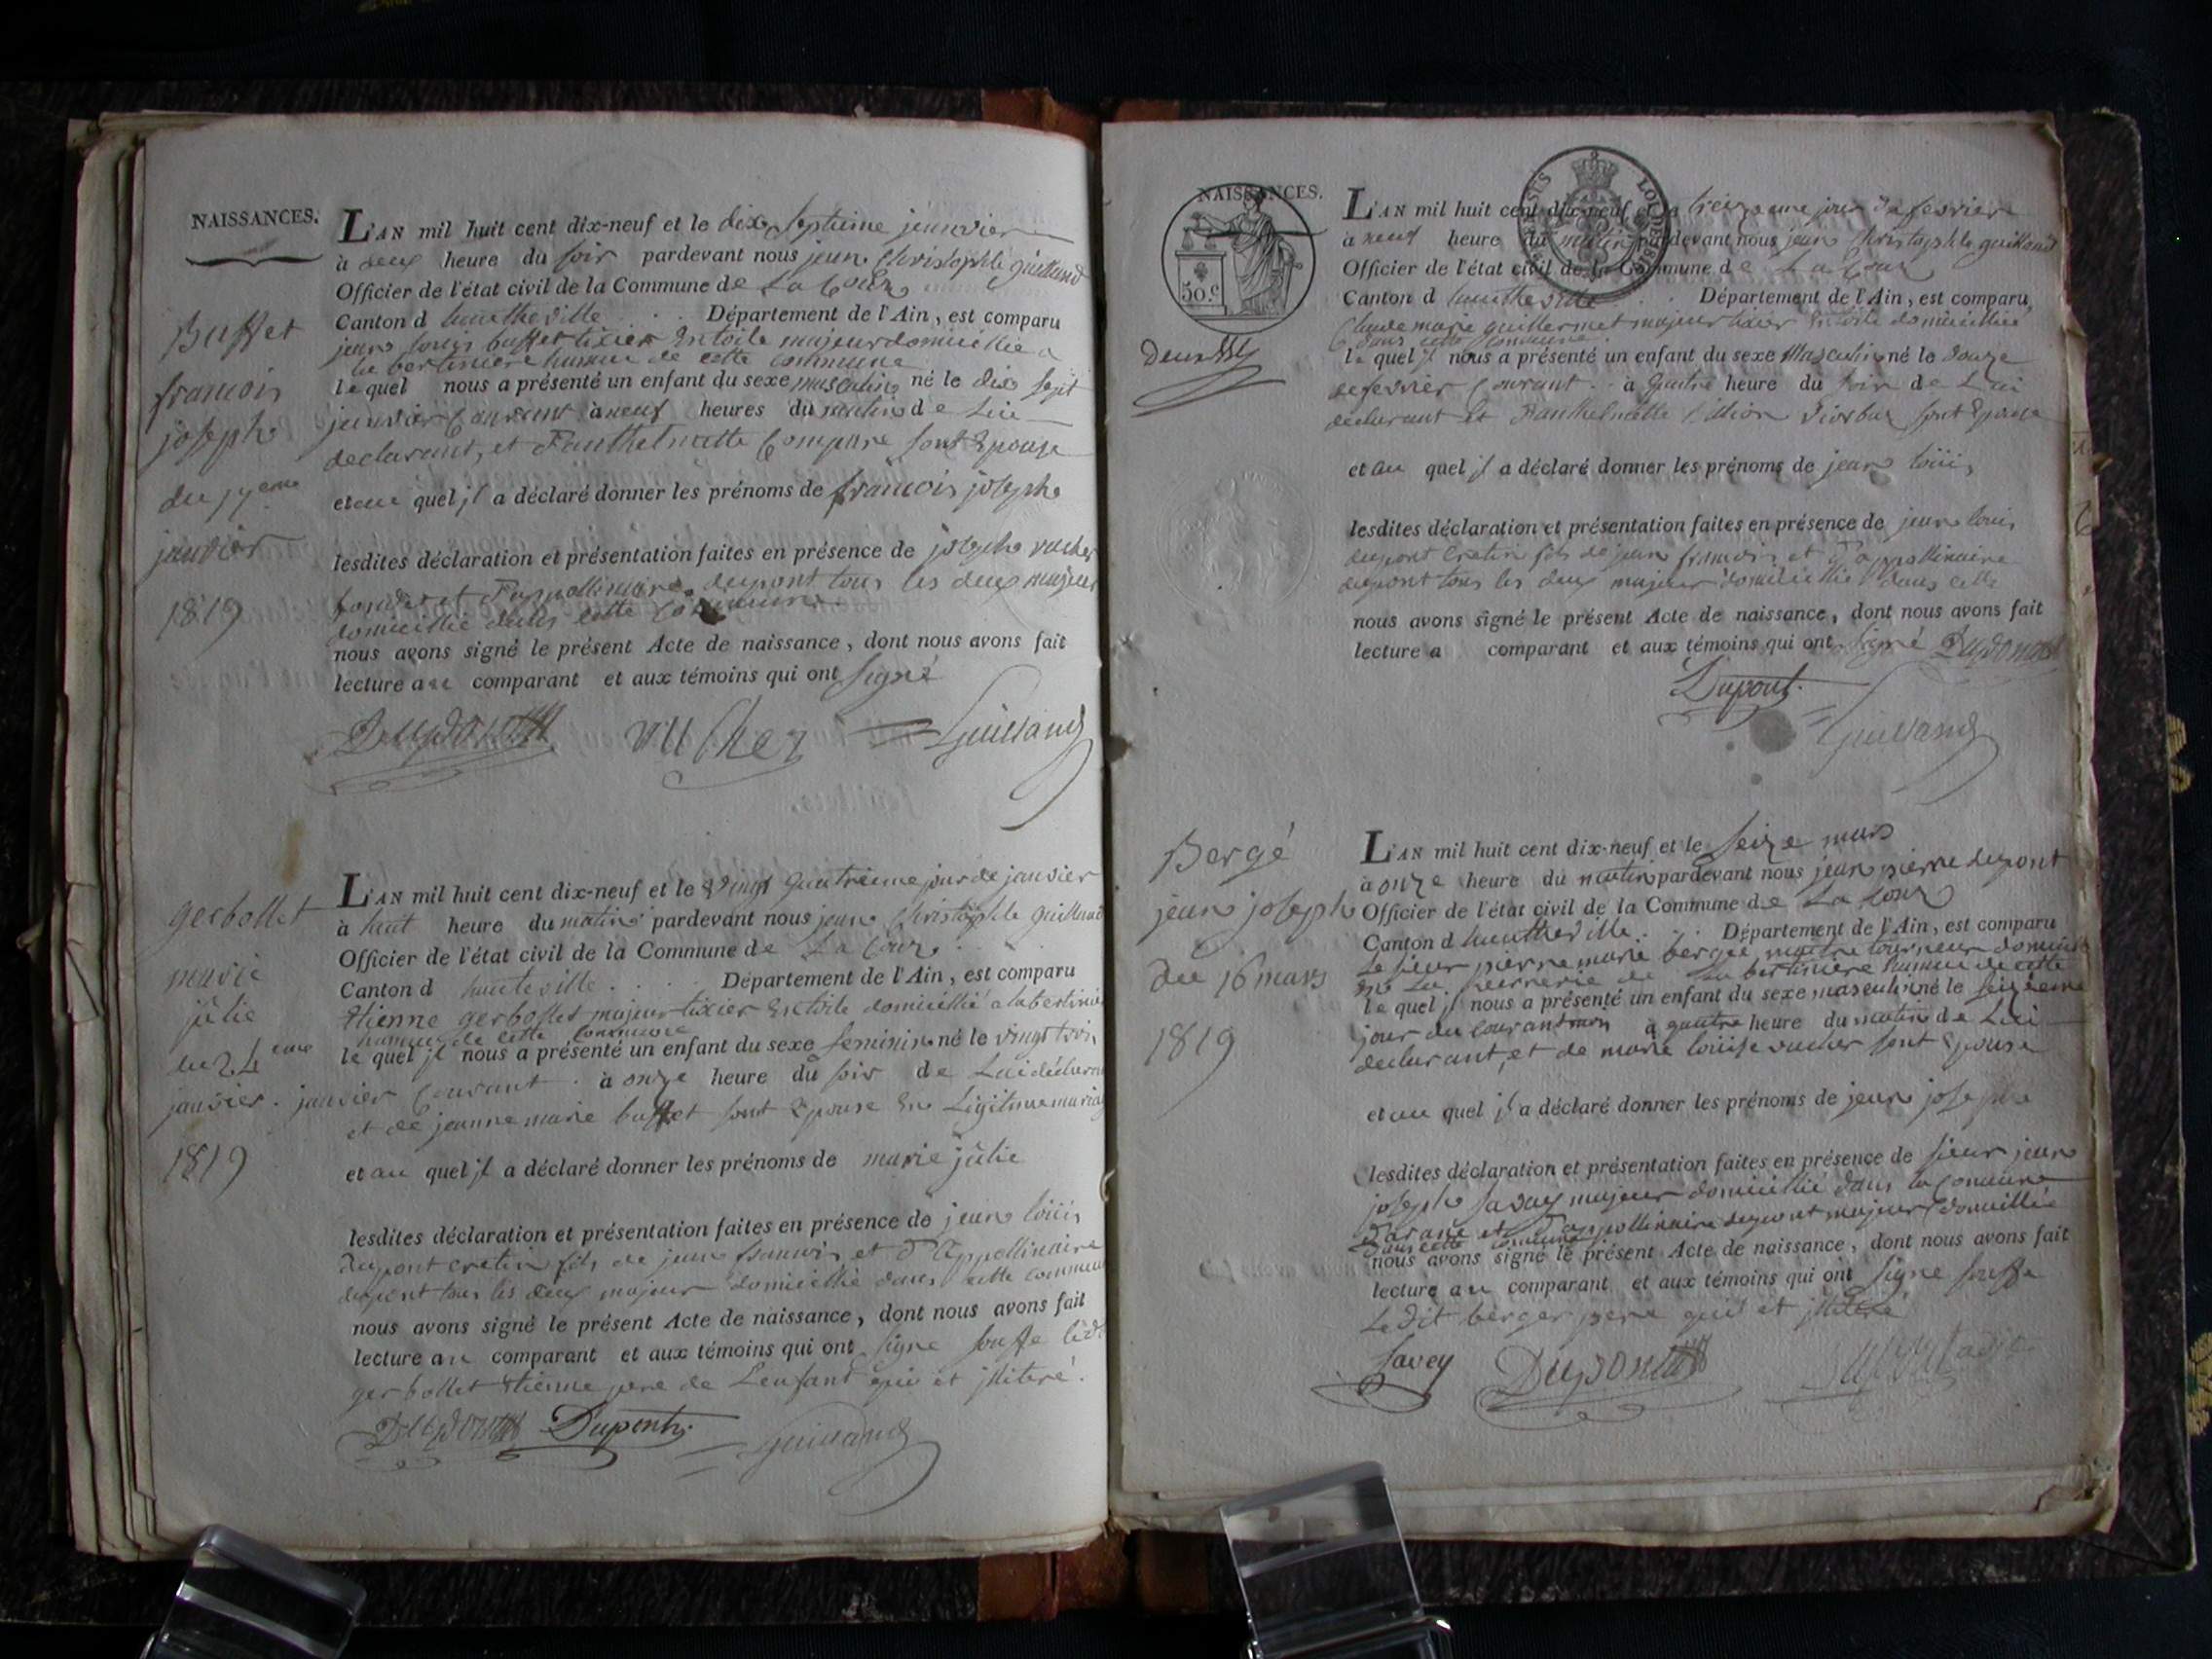 NAISSANCES.
L'AN mil huit cent dix-neuf et le dix Septieme jeanvier
à deux heure du soir pardevant nous jean Christophle guilland
Officier de l'état civil de la Commune de La Coux
Canton d hautheville . . Département de l'Ain, est comparu
jean louis buffet tixier en toile majeur domicillié a
la bertiniere hameau de cette commune
le quel nous a présenté un enfant du sexe masculin né le dix sept
janvier Courant à neuf heures du matin de lui
declarant, et Fanthelmette Compare sont Epouse
et au quel jl a déclaré donner les prénoms de francois joseph
lesdites déclaration et présentation faites en présence de joseph vucher
et Fappollinaire dupont tous les deux majeur
domicillié dans cette commune.
nous avons signé le présent Acte de naissance, dont nous avons fait
lecture au comparant et aux témoins qui ont signé
Dupont vucher Guilland
Buffet
francois
joseph
du 17eme
janvier
1819
L'AN mil huit cent dix-neuf et le vingt quatrieme jour de janvier
à huit heure du matin pardevant nous jean Christophle guilland
Officier de l'état civil de la Commune de La Coux
Canton d hauteville . . . Département de l'Ain, est comparu
Etienne gerbollet majeur tixier en toile domicillié a la bertinie
hameau de cette commune
le quel jl nous a présenté un enfant du sexe feminin né le vingt trois
janvier Courant . à onze heure du soir de Lui déclarant
et de jeanne marie buffet sont Epouse en Légitime mariag
et au quel jl a déclaré donner les prénoms de marie julie
lesdites déclaration et présentation faites en présence de jean louis
dupont cretin fils de jean francois et d'Appollinaire
dupont tous les deux majeur domicillié dans cette commune
nous avons signé le présent Acte de naissance, dont nous avons fait
lecture au comparant et aux témoins qui ont signe souffe ledt
gerbollet Etienne pere de Lenfant qui et jlliteré.
Dupont Dupont Guilland
gerbollet
marie
julie
du 24eme
janvier.
1819
NAISSANCES.
50.C
LOI DE 18
Deux
L'AN mil huit cent dix-neuf et le treizieme jour de fevrier
à neuf heure du matin pardevant nous jean Christophle guilland
Officier de l'état civil de la Commune de La Coux
Canton d hautheville . . Département de l'Ain, est comparu
Claude marie guillermet majeur tixier en toile domicillié
dans cette commune.
le quel jl nous a présenté un enfant du sexe Masculin né le douze
de fevrier Courant . . à quatre heure du soir de Lui
declarant et Fanthelmette sont Epouse
et au quel jl a déclaré donner les prénoms de jean louis
lesdites déclaration et présentation faites en présence de jean louis
dupont cretin fils de jean francois et d'appollinaire
dupont tous les deux majeur domicillié dans cette
nous avons signé le présent Acte de naissance, dont nous avons fait
lecture a comparant et aux témoins qui ont signé Dupont
Dupont.
Guilland
Bergé
jean joseph
du 16 mars
1819
L'AN mil huit cent dix-neuf et le seize mars
à onze heure du matin pardevant nous jean pierre dupont
Officier de l'état civil de la Commune de La Coux
Canton d hautheville . . Département de l'Ain, est comparu
Le sieur pierre marie berger maitre tourneur domicil
en La de La bertiniere hameau de cette
le quel jl nous a présenté un enfant du sexe masculin né le seizieme
jour du courant mois à quatre heure du matin de Lui
declarant, et de marie louise vucher sont Epouse
et au quel jl a déclaré donner les prénoms de jean joseph
lesdites déclaration et présentation faites en présence de sieur jean
joseph savey majeur domicillié dans la commune
et d'appollinaire dupont majeur domicillié
dans cette commune
nous avons signé le présent Acte de naissance, dont nous avons fait
lecture au comparant et aux témoins qui ont signe souffe
Ledit berger pere qui et jlliteré
Savey Dupont